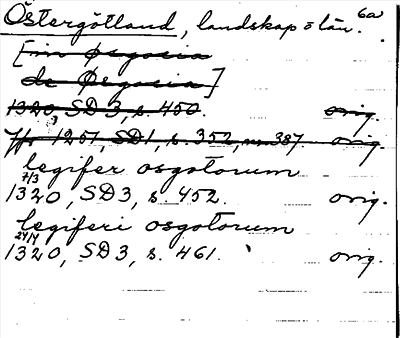 6a
Östergötland, landskap o län.
[in Osgocia
de Osgocia]
1320, SD 3, s. 450. orig.
Jfr 1251, SD 1, s. 352, nr 387 orig.
legifer osgotorum
7/3
1320, SD 3, s. 452. orig.
legiferi osgotorum
24/4
1320, SD 3, s. 461. orig.